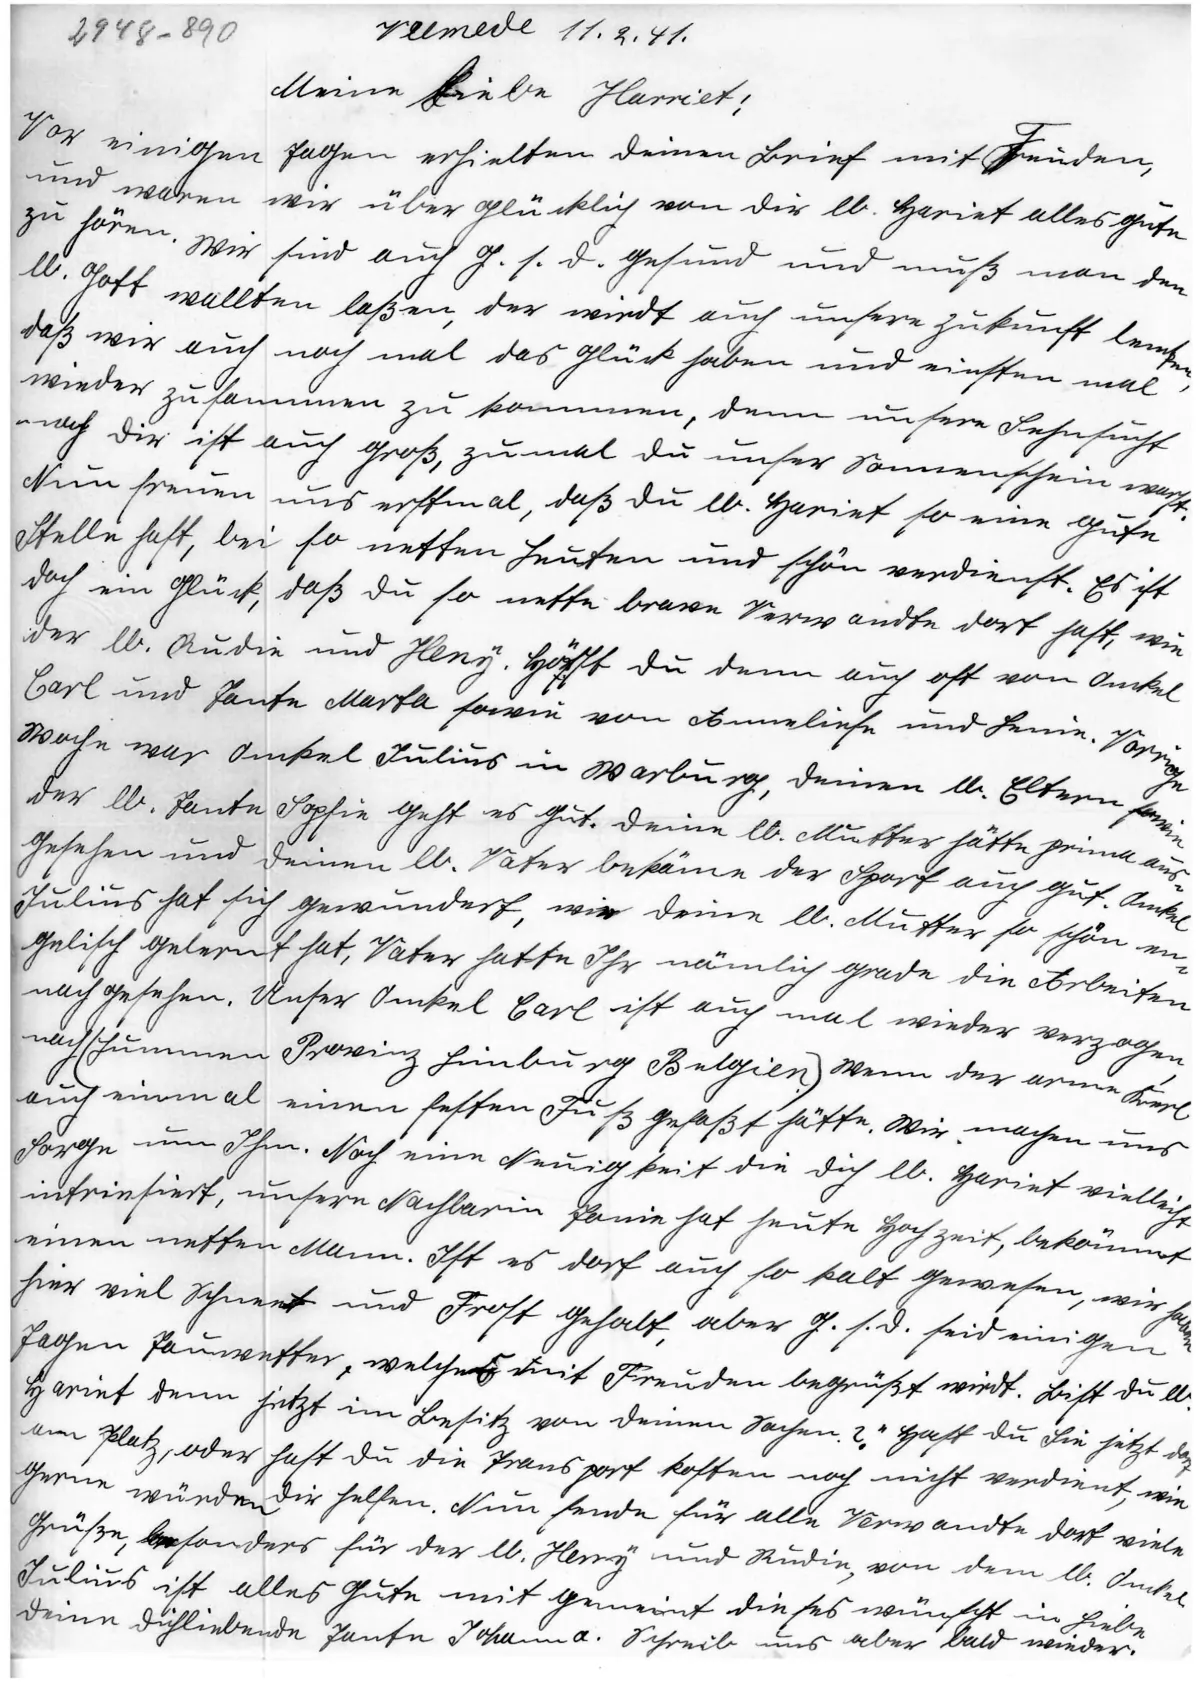 2948-890
Velmede 11.2.41.
Meine Liebe Harriet!
Vor einigen Tagen erhielten deinen Brief mit Freuden,
und waren wir über glücklich von dir lb. Hariet alles gute
zu hören. Wir sind auch G. s. d. gesund und muß man den
lb. Gott wallten laßen, der wirdt auch unsere Zukunft lenken,
daß wir auch noch mal das Glück haben und einsten mal
wieder zusammen zu kommen, denn unsere Sehnsucht
nach dir ist auch groß, zumal du unser Sonnenschein warst.
Nun freuen uns erstmal, daß du lb. Hariet so eine gute
Stelle hast, bei so netten Leuten und schön verdienst. Es ist
doch ein Glück, daß du so nette brave Verwandte dort hast, wie
der lb. Rudie und Henÿ. Hörst du denn auch oft von Onkel
Carl und Tante Marta sowie von Anneliese und Lenie. Vorrige
Woche war Onkel Julius in Warburg, deinen lb. Eltern sowie
der lb. Tante Sophie geht es gut. deine lb. Mutter hätte prima aus-
gesehen und deinen lb. Vater bekäme der Sport auch gut. Onkel
Julius hat sich gewundert, wie deine lb. Mutter so schön en-
gelisch gelernt hat, Vater hatte Ihr nämlich grade die Arbeiten
nach gesehen. Unser Onkel Carl ist auch mal wieder verzogen,
nach (Lummen Provinz Limburg Belgien.) Wenn der arme Kerl
auch einmal einen festen Fuß gefaßt hätte. Wir machen uns
Sorge um Ihm. Noch eine Neuigkeit die dich lb. Hariet vielleicht
intriesiert, unsere Nachbarin Tonie hat heute Hochzeit, bekömmt
einen netten Mann. Ist es dort auch so kalt gewesen, wir haben
hier viel Schnee und Frost gehabt, aber G. s. d. seid einigen
Tagen Tauwetter, welches mit Freuden begrüßt wirdt. Bist du lb.
Hariet denn jetzt im Besitz von deinen Sachen.?" Hast du Sie jetzt dort
am Platz, oder hast du die Transport kosten noch nicht verdient, wie
gerne würden dir helfen. Nun sende für alle Verwandte dort viele
Grüße, besonders für der lb. Henÿ und Rudie, von dem lb. Onkel
Julius ist alles Gute mit gemeint dieses wünscht in Liebe
deine dichliebende Tante Johanna. Schreib uns aber bald wieder.